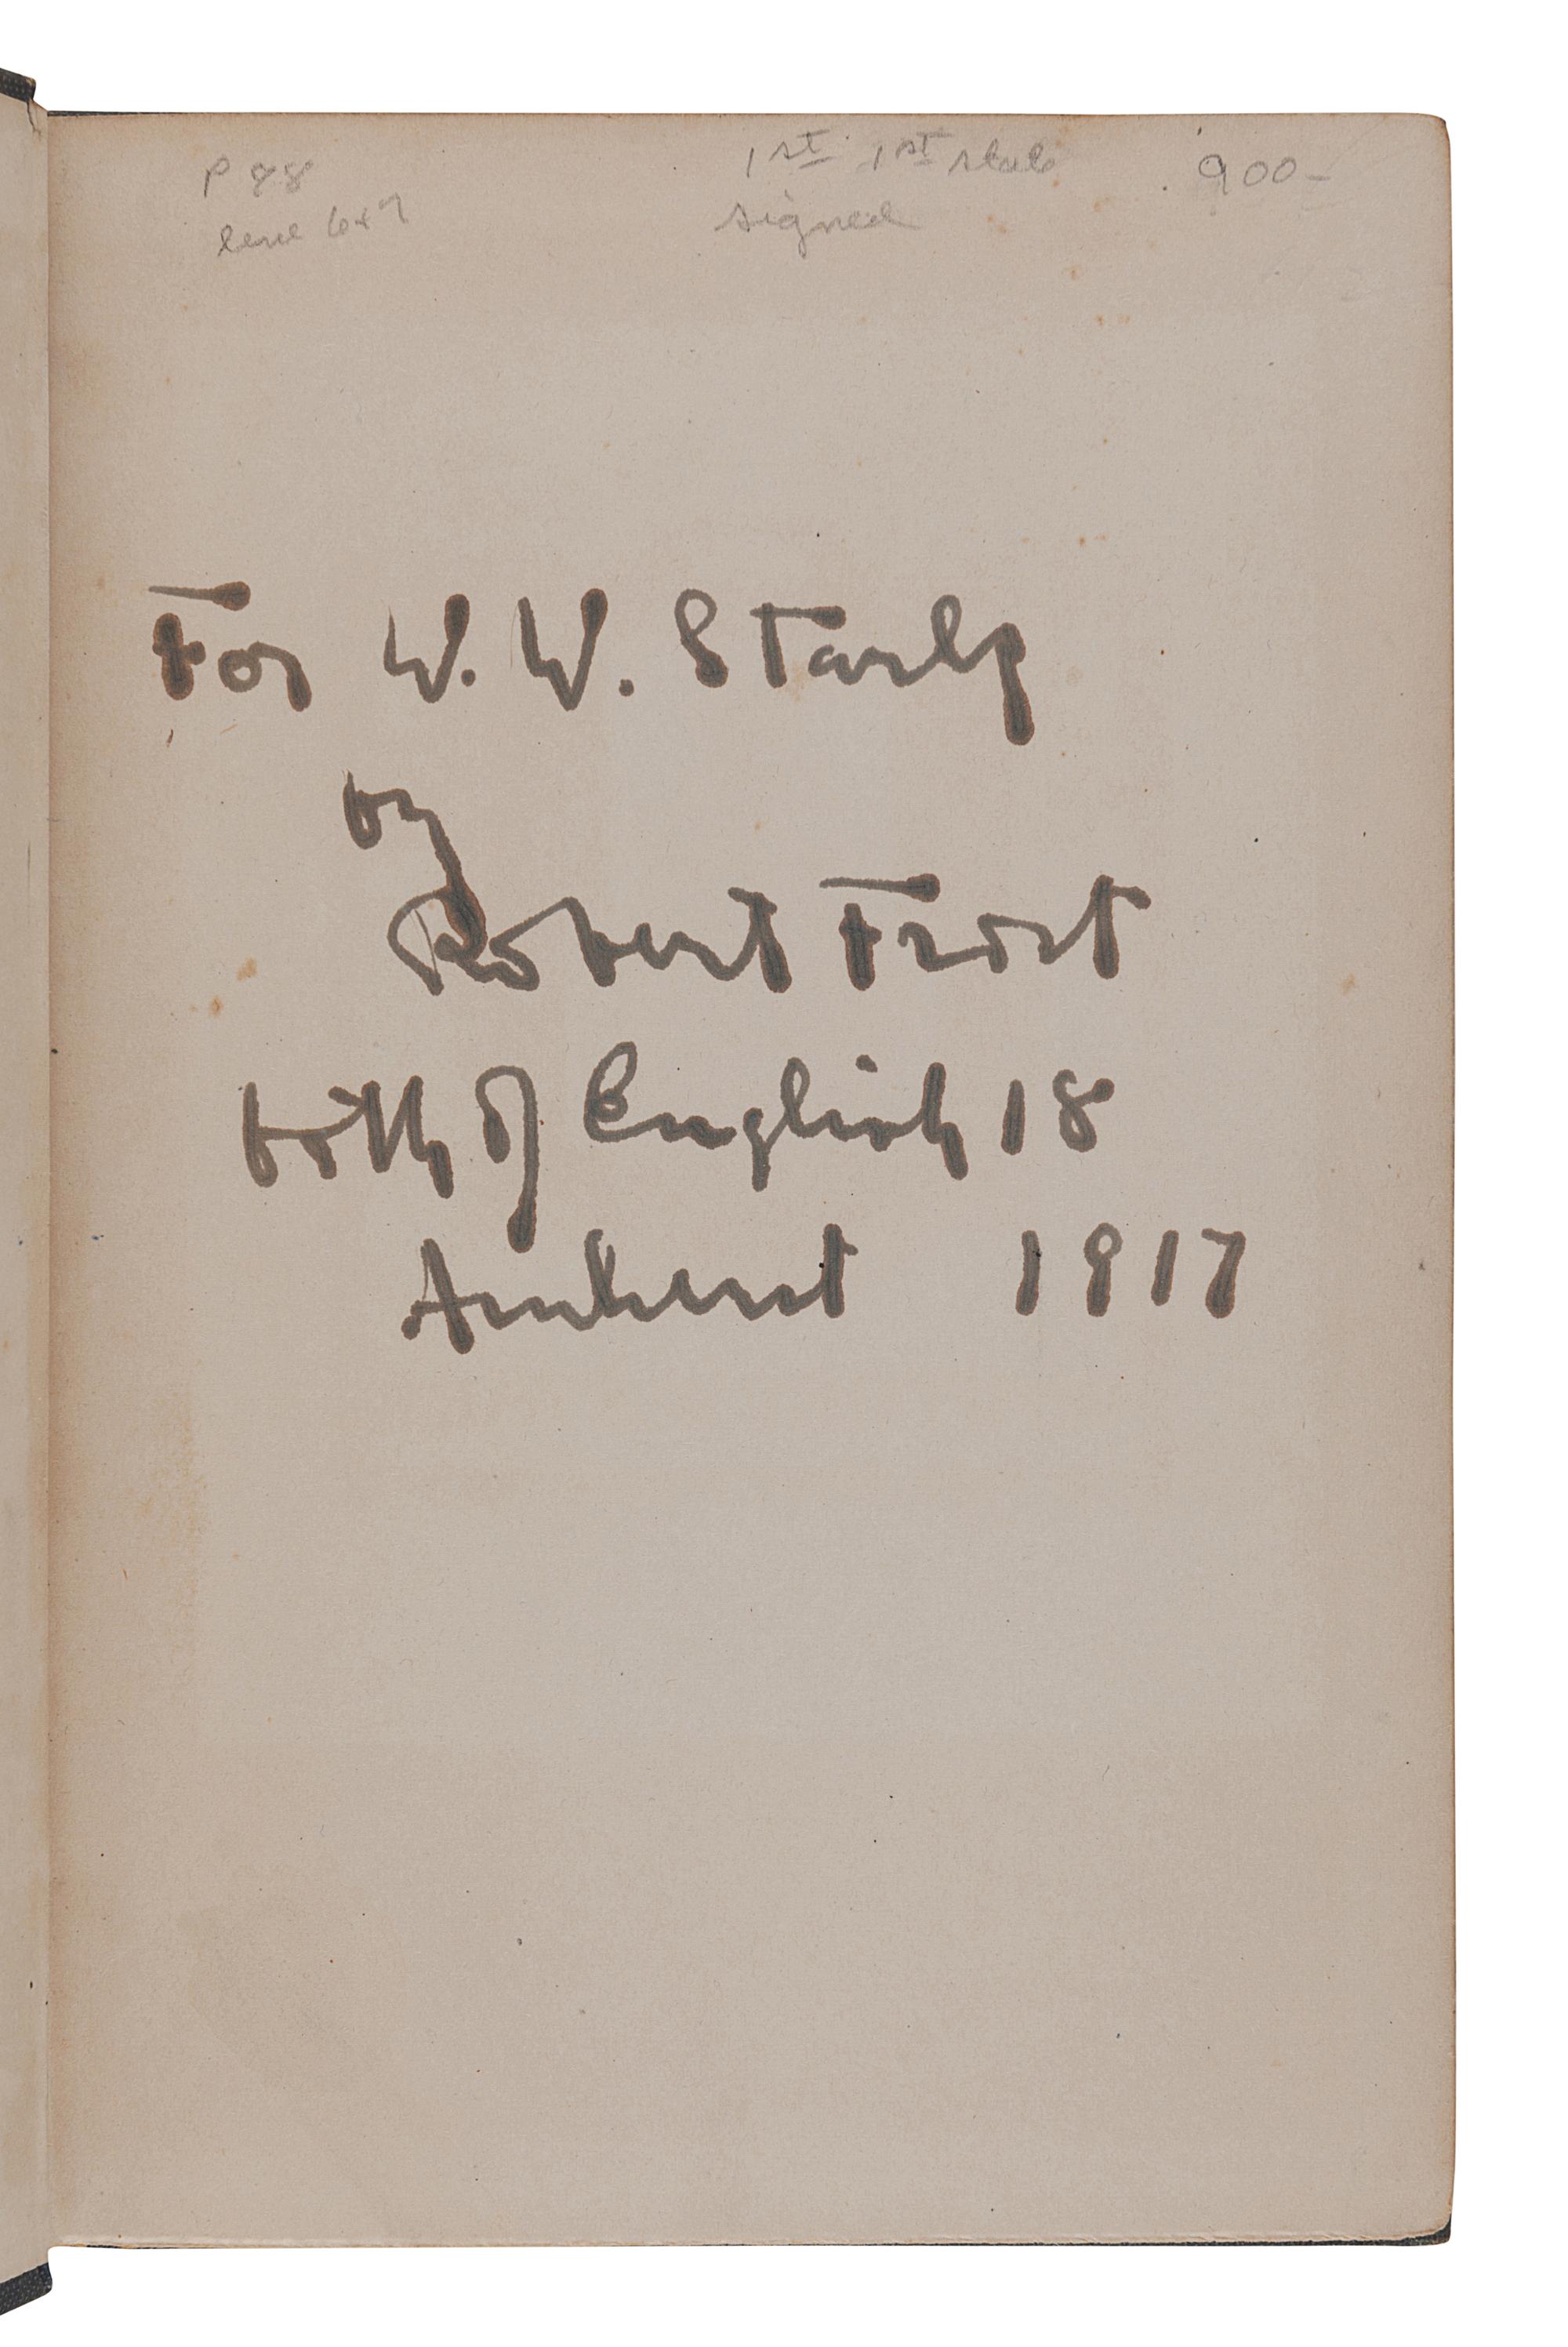 P 88
line 6+7
1st 1st state
signed
900-
For W. W.
by
Robert Frost
both of English 18
Amherst 1917